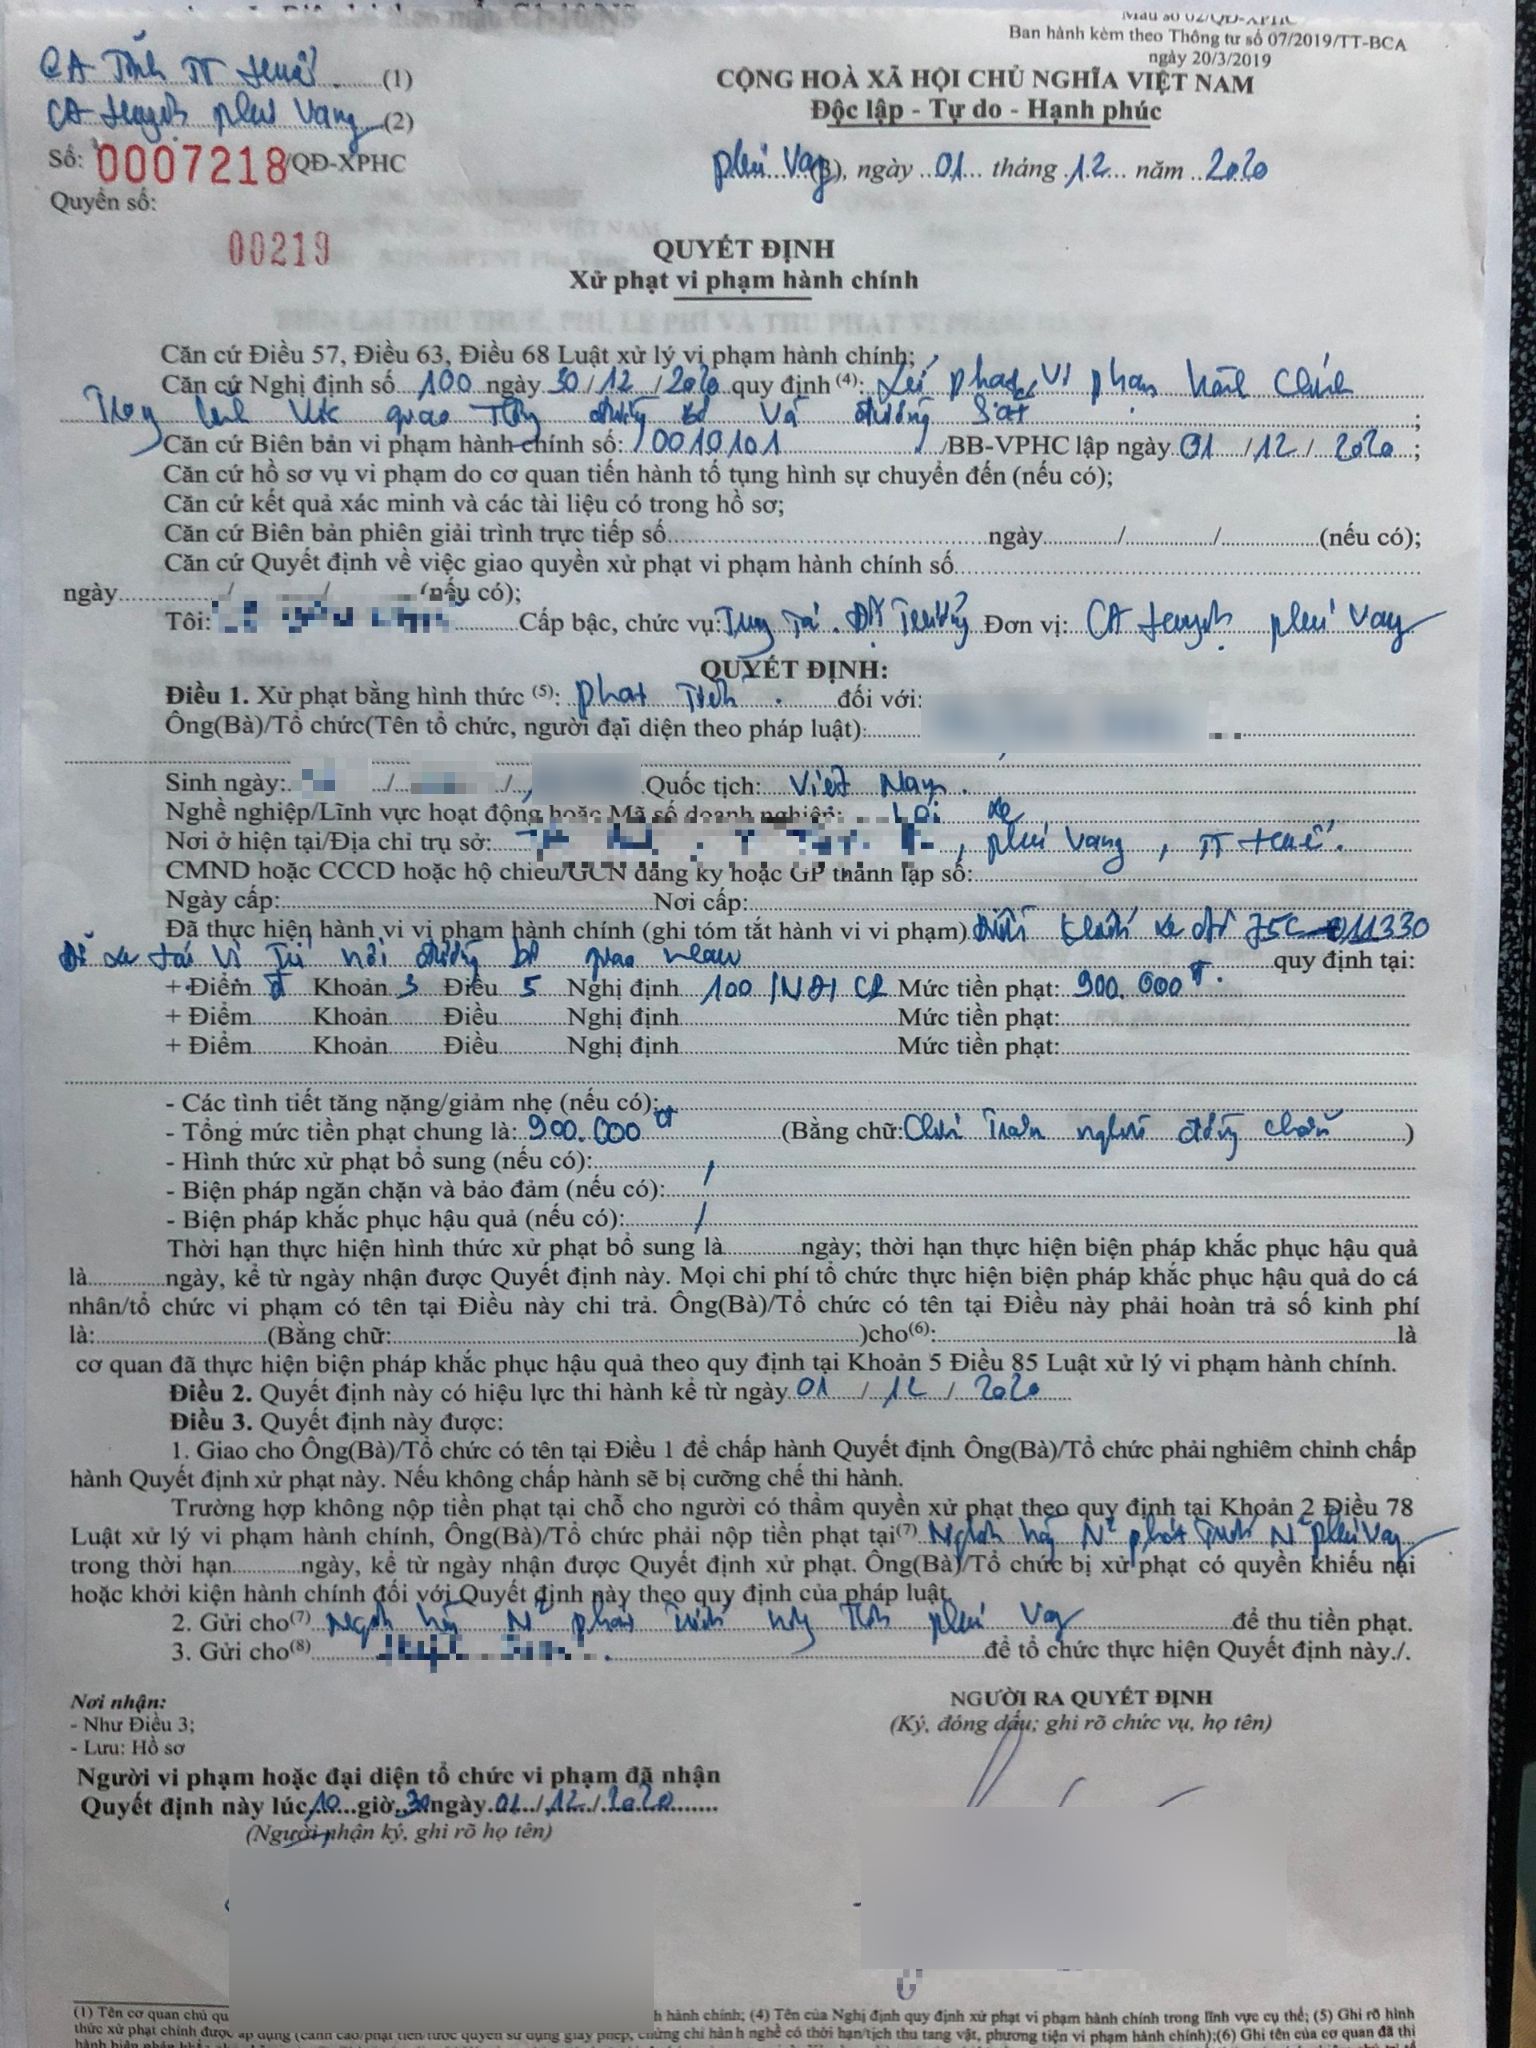 Mẫu số 02/QĐ-XPHC
Ban hành kèm theo Thông tư số 07/2019/TT-BCA
ngày 20/3/2019
CA Tỉnh TT Huế (1)
CA Huyện Phú Vang (2)
Số: 0007218/QĐ-XPHC
Quyển số:
00219
CỘNG HOÀ XÃ HỘI CHỦ NGHĨA VIỆT NAM
Độc lập - Tự do - Hạnh phúc
Phú Vang (3), ngày 01 tháng 12 năm 2020
QUYẾT ĐỊNH
Xử phạt vi phạm hành chính
Căn cứ Điều 57, Điều 63, Điều 68 Luật xử lý vi phạm hành chính;
Căn cứ Nghị định số 100 ngày 30/12/2020 quy định (4): Xử phạt vi phạm hành chính
Trong lĩnh vực giao thông đường bộ và đường sắt ;
Căn cứ Biên bản vi phạm hành chính số: 0010101 /BB-VPHC lập ngày 01/12/2020;
Căn cứ hồ sơ vụ vi phạm do cơ quan tiến hành tố tụng hình sự chuyển đến (nếu có);
Căn cứ kết quả xác minh và các tài liệu có trong hồ sơ;
Căn cứ Biên bản phiên giải trình trực tiếp số.......... ngày........../........../..........(nếu có);
Căn cứ Quyết định về việc giao quyền xử phạt vi phạm hành chính số..........
ngày........../........../..........(nếu có);
Tôi: Cấp bậc, chức vụ: Trung Tá. Đội Trưởng Đơn vị: CA Huyện Phú Vang
QUYẾT ĐỊNH:
Điều 1. Xử phạt bằng hình thức (5): phạt tiền đối với:
Ông(Bà)/Tổ chức(Tên tổ chức, người đại diện theo pháp luật):
Sinh ngày: / / Quốc tịch: Việt Nam.
Nghề nghiệp/Lĩnh vực hoạt động hoặc Mã số doanh nghiệp: Lái xe
Nơi ở hiện tại/Địa chỉ trụ sở: , Phú Vang, TT Huế.
CMND hoặc CCCD hoặc hộ chiếu/GCN đăng ký hoặc GP thành lập số:
Ngày cấp: Nơi cấp:
Đã thực hiện hành vi vi phạm hành chính (ghi tóm tắt hành vi vi phạm) Điều khiển xe ôtô 75C-011330
Đỗ xe tại vị trí nơi đường bộ giao nhau quy định tại:
+ Điểm Khoản 3 Điều 5 Nghị định 100/NĐ/CP Mức tiền phạt: 900.000đ.
+ Điểm Khoản Điều Nghị định Mức tiền phạt:
+ Điểm Khoản Điều Nghị định Mức tiền phạt:
- Các tình tiết tăng nặng/giảm nhẹ (nếu có):
- Tổng mức tiền phạt chung là: 900.000đ (Bằng chữ: Chín Trăm nghìn đồng chẵn )
- Hình thức xử phạt bổ sung (nếu có): /
- Biện pháp ngăn chặn và bảo đảm (nếu có): /
- Biện pháp khắc phục hậu quả (nếu có): /
Thời hạn thực hiện hình thức xử phạt bổ sung là..........ngày; thời hạn thực hiện biện pháp khắc phục hậu quả
là..........ngày, kể từ ngày nhận được Quyết định này. Mọi chi phí tổ chức thực hiện biện pháp khắc phục hậu quả do cá
nhân/tổ chức vi phạm có tên tại Điều này chi trả. Ông(Bà)/Tổ chức có tên tại Điều này phải hoàn trả số kinh phí
là:..........(Bằng chữ:..........)cho(6):..........là
cơ quan đã thực hiện biện pháp khắc phục hậu quả theo quy định tại Khoản 5 Điều 85 Luật xử lý vi phạm hành chính.
Điều 2. Quyết định này có hiệu lực thi hành kể từ ngày 01/12/2020
Điều 3. Quyết định này được:
1. Giao cho Ông(Bà)/Tổ chức có tên tại Điều 1 để chấp hành Quyết định. Ông(Bà)/Tổ chức phải nghiêm chỉnh chấp
hành Quyết định xử phạt này. Nếu không chấp hành sẽ bị cưỡng chế thi hành.
Trường hợp không nộp tiền phạt tại chỗ cho người có thẩm quyền xử phạt theo quy định tại Khoản 2 Điều 78
Luật xử lý vi phạm hành chính, Ông(Bà)/Tổ chức phải nộp tiền phạt tại(7) Ngân hàng N² phát triển N² Phú Vang
trong thời hạn..........ngày, kể từ ngày nhận được Quyết định xử phạt. Ông(Bà)/Tổ chức bị xử phạt có quyền khiếu nại
hoặc khởi kiện hành chính đối với Quyết định này theo quy định của pháp luật.
2. Gửi cho(7) Ngân hàng N² phát triển nông thôn Phú Vang để thu tiền phạt.
3. Gửi cho(8) để tổ chức thực hiện Quyết định này./.
Nơi nhận:
- Như Điều 3;
- Lưu: Hồ sơ
NGƯỜI RA QUYẾT ĐỊNH
(Ký, đóng dấu; ghi rõ chức vụ, họ tên)
Người vi phạm hoặc đại diện tổ chức vi phạm đã nhận
Quyết định này lúc 10 giờ 30 ngày 01/12/2020
(Người nhận ký, ghi rõ họ tên)
(1) Tên cơ quan chủ qu h hành chính; (4) Tên của Nghị định quy định xử phạt vi phạm hành chính trong lĩnh vực cụ thể; (5) Ghi rõ hình
thức xử phạt chính được áp dụng (cảnh cáo/phạt tiền/tước quyền sử dụng giấy phép, chứng chỉ hành nghề có thời hạn/tịch thu tang vật, phương tiện vi phạm hành chính);(6) Ghi tên của cơ quan đã thi